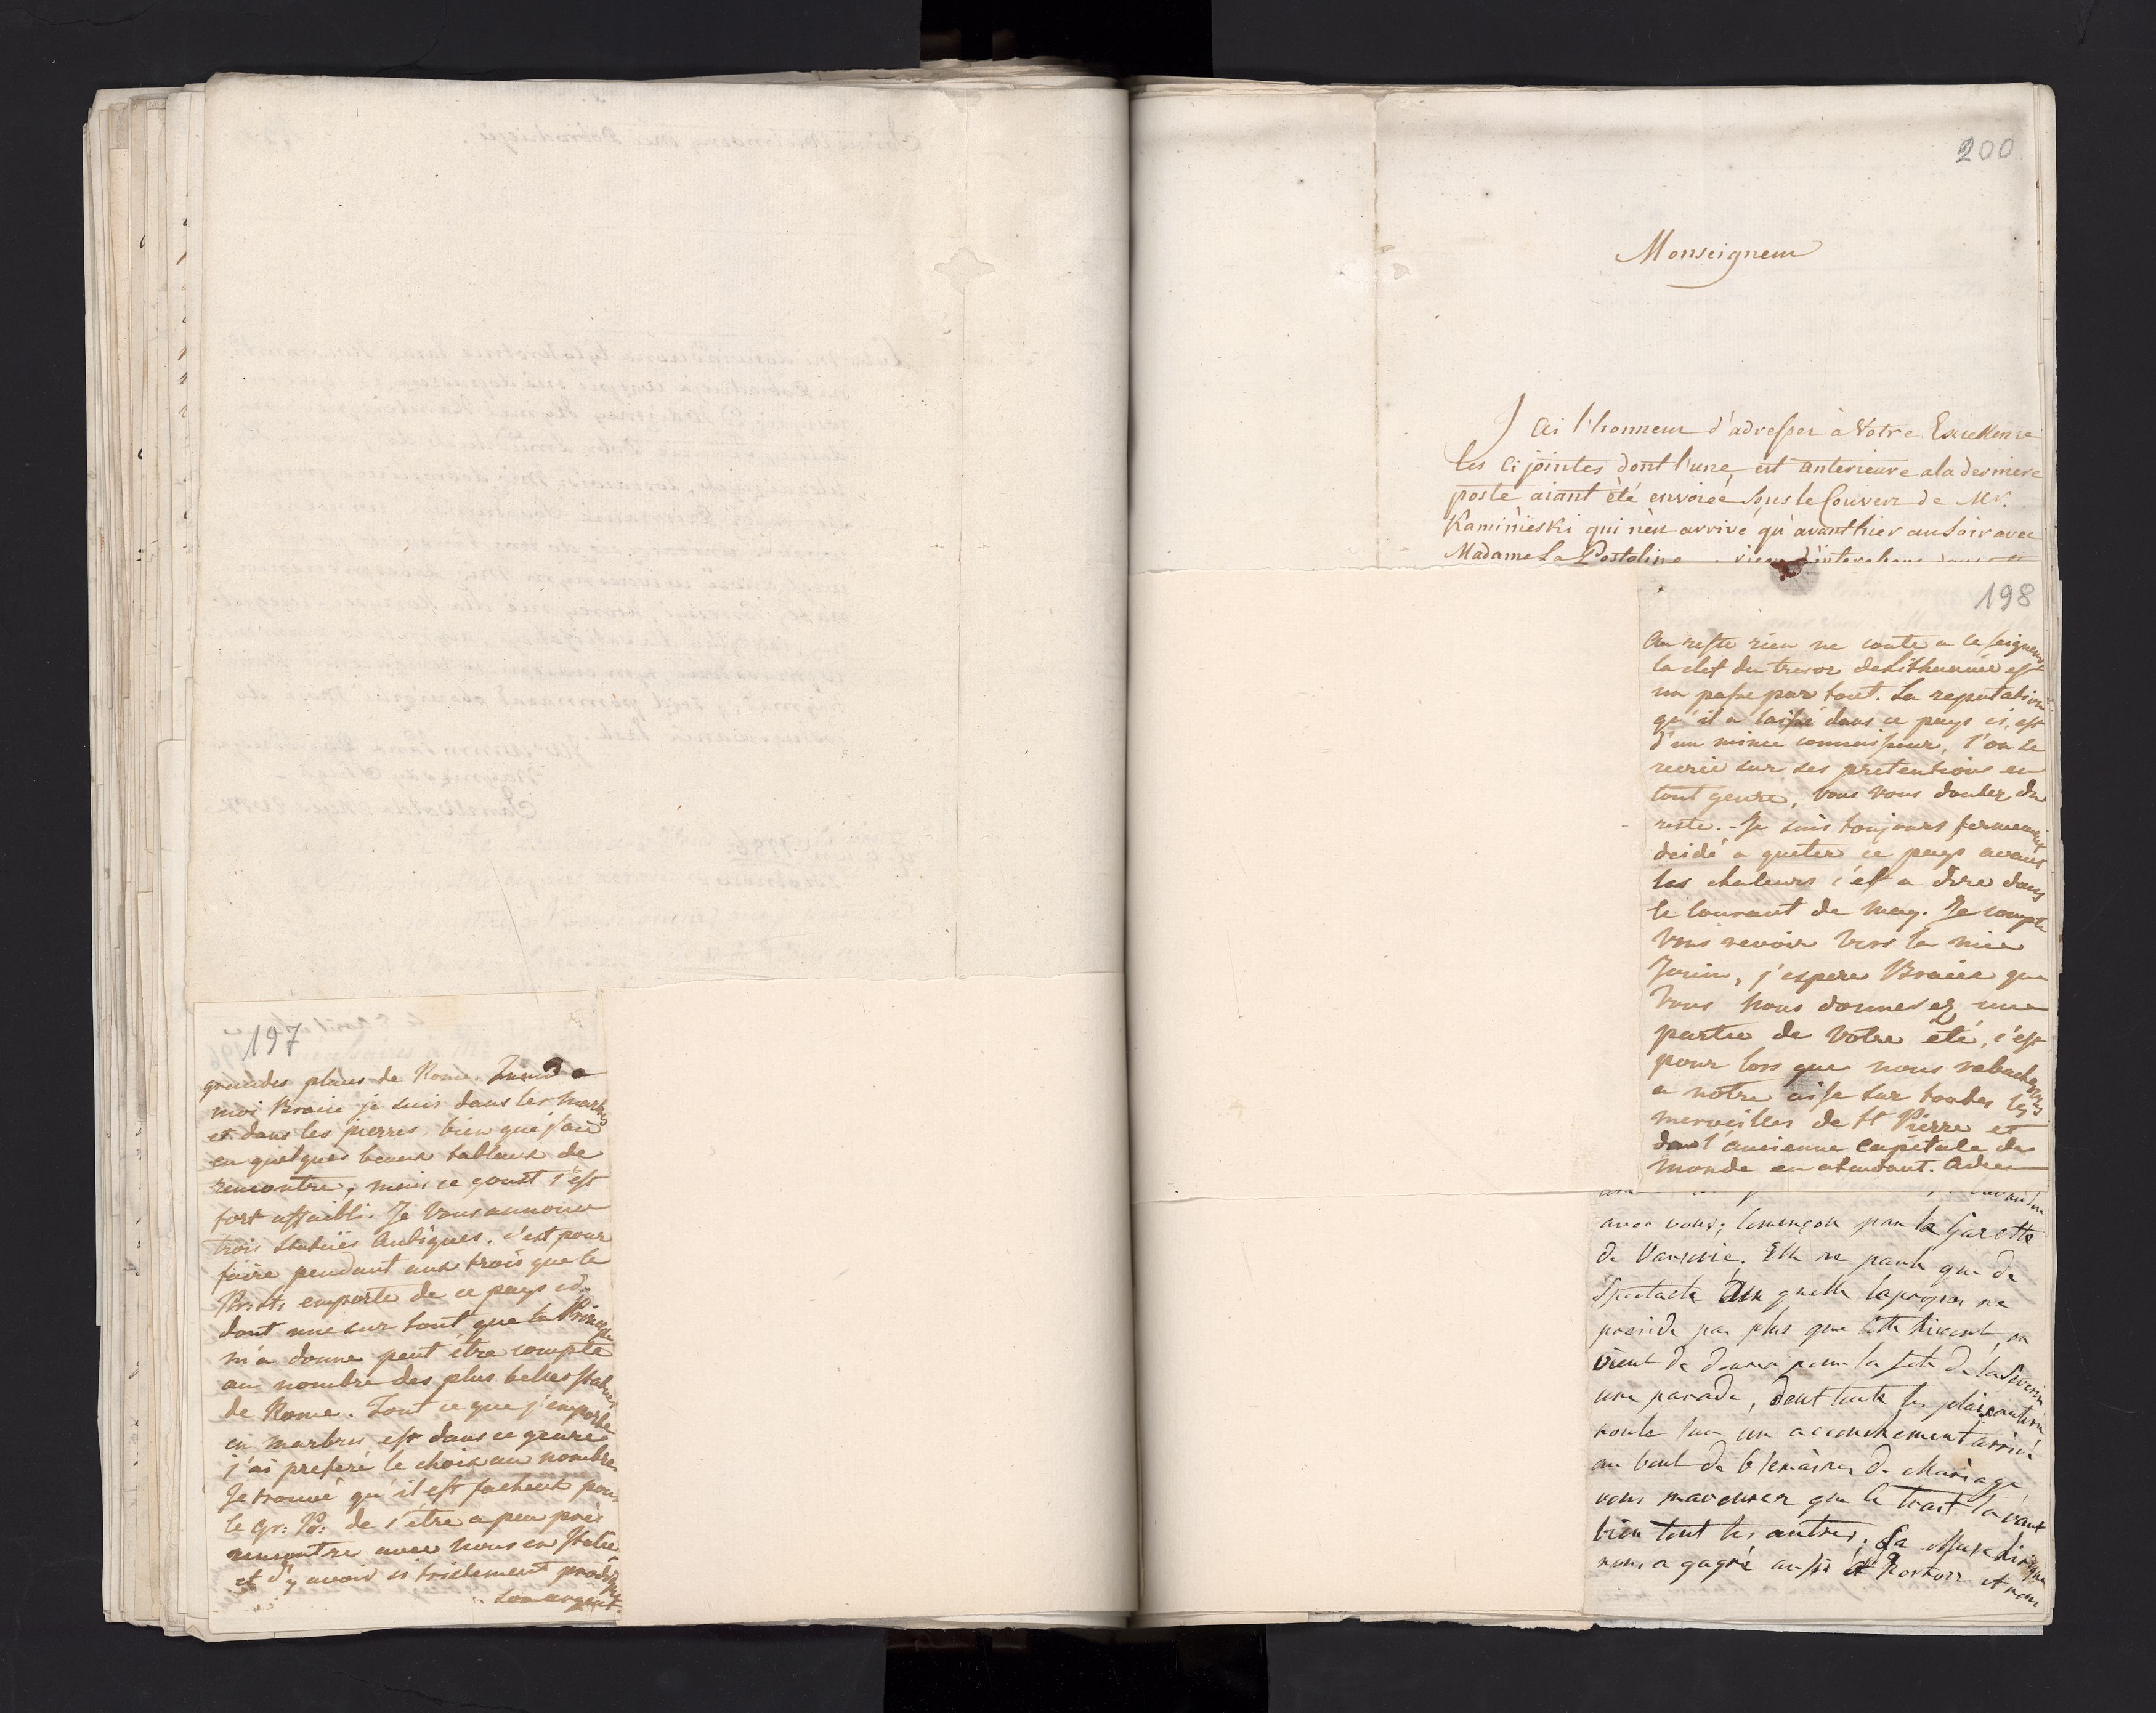 197
grandes places de Rome. Quand a
moi Braire je suis dans les marbres
et dans les pierres, bien que j'aie
eu quelques beaux tableaux de
rencontre, mais ce goust s'est
fort affaibli. Je vous annonce
trois statuës antiques, c'est pour
faire pendant aux trois que le
emporte de ce pays ci
dont une sur tout que la Princesse
m'a donne peut être compte
au nombre des plus belles statues
de Rome. Tout ce que j'emporte
en marbres est dans ce genre
j'ai preferé le choix au nombre
Je trouve qu'il est facheux pour
le gr: de s'être a peu près
rencontre avec nous en statue
et d'y avoir si tristement prodigué
son argent.
200
Monseigneur
J'ai l'honneur d'adresser à Votre Excellence
les ci jointes dont l'une est anterieure a la derniere
poste aiant été envoiée sous le Couvert de Mr.
Kaminieski qui n'est arrivé qu'avant hier au soir avec
Madame La
198
Au reste rien ne coute a ce seigneur
la clef du tresor de Lithuanie est
un passe par tout. La reputation
qu'il a laissé dans ce pays ci, est
d'un mince connaisseur, l'on se
recrie sur ses pretentions en
tout genre, vous vous doutez du
reste. - Je suis toujours fermement
decidé a quiter ce pays avant
les chaleurs c'est a dire dans
le courant de may. Je compte
vous revoir vers la mie
Juin, j'espere Braire que
vous nous donnerez une
partie de votre été, c'est
pour lors que nous rabacherons
a notre aise sur toutes les
merveilles de St Pierre et
de l'ancienne capitale du
monde en attendant. Adieu
avec vous; començon par la Gazette
de Varsovie. Elle ne parle que de
Spectacle
preside pas plus que cette hiver, on
vient de donner pour la fete de la
une parade, dont toute les plaisanteries
roule sur un accouchement arrivé
au bout de 6 semaines de Mariage
vous mavouerez que le trait la vaut
bien tout les autres; La Muse Lirique
nous a gagné aussi et nous